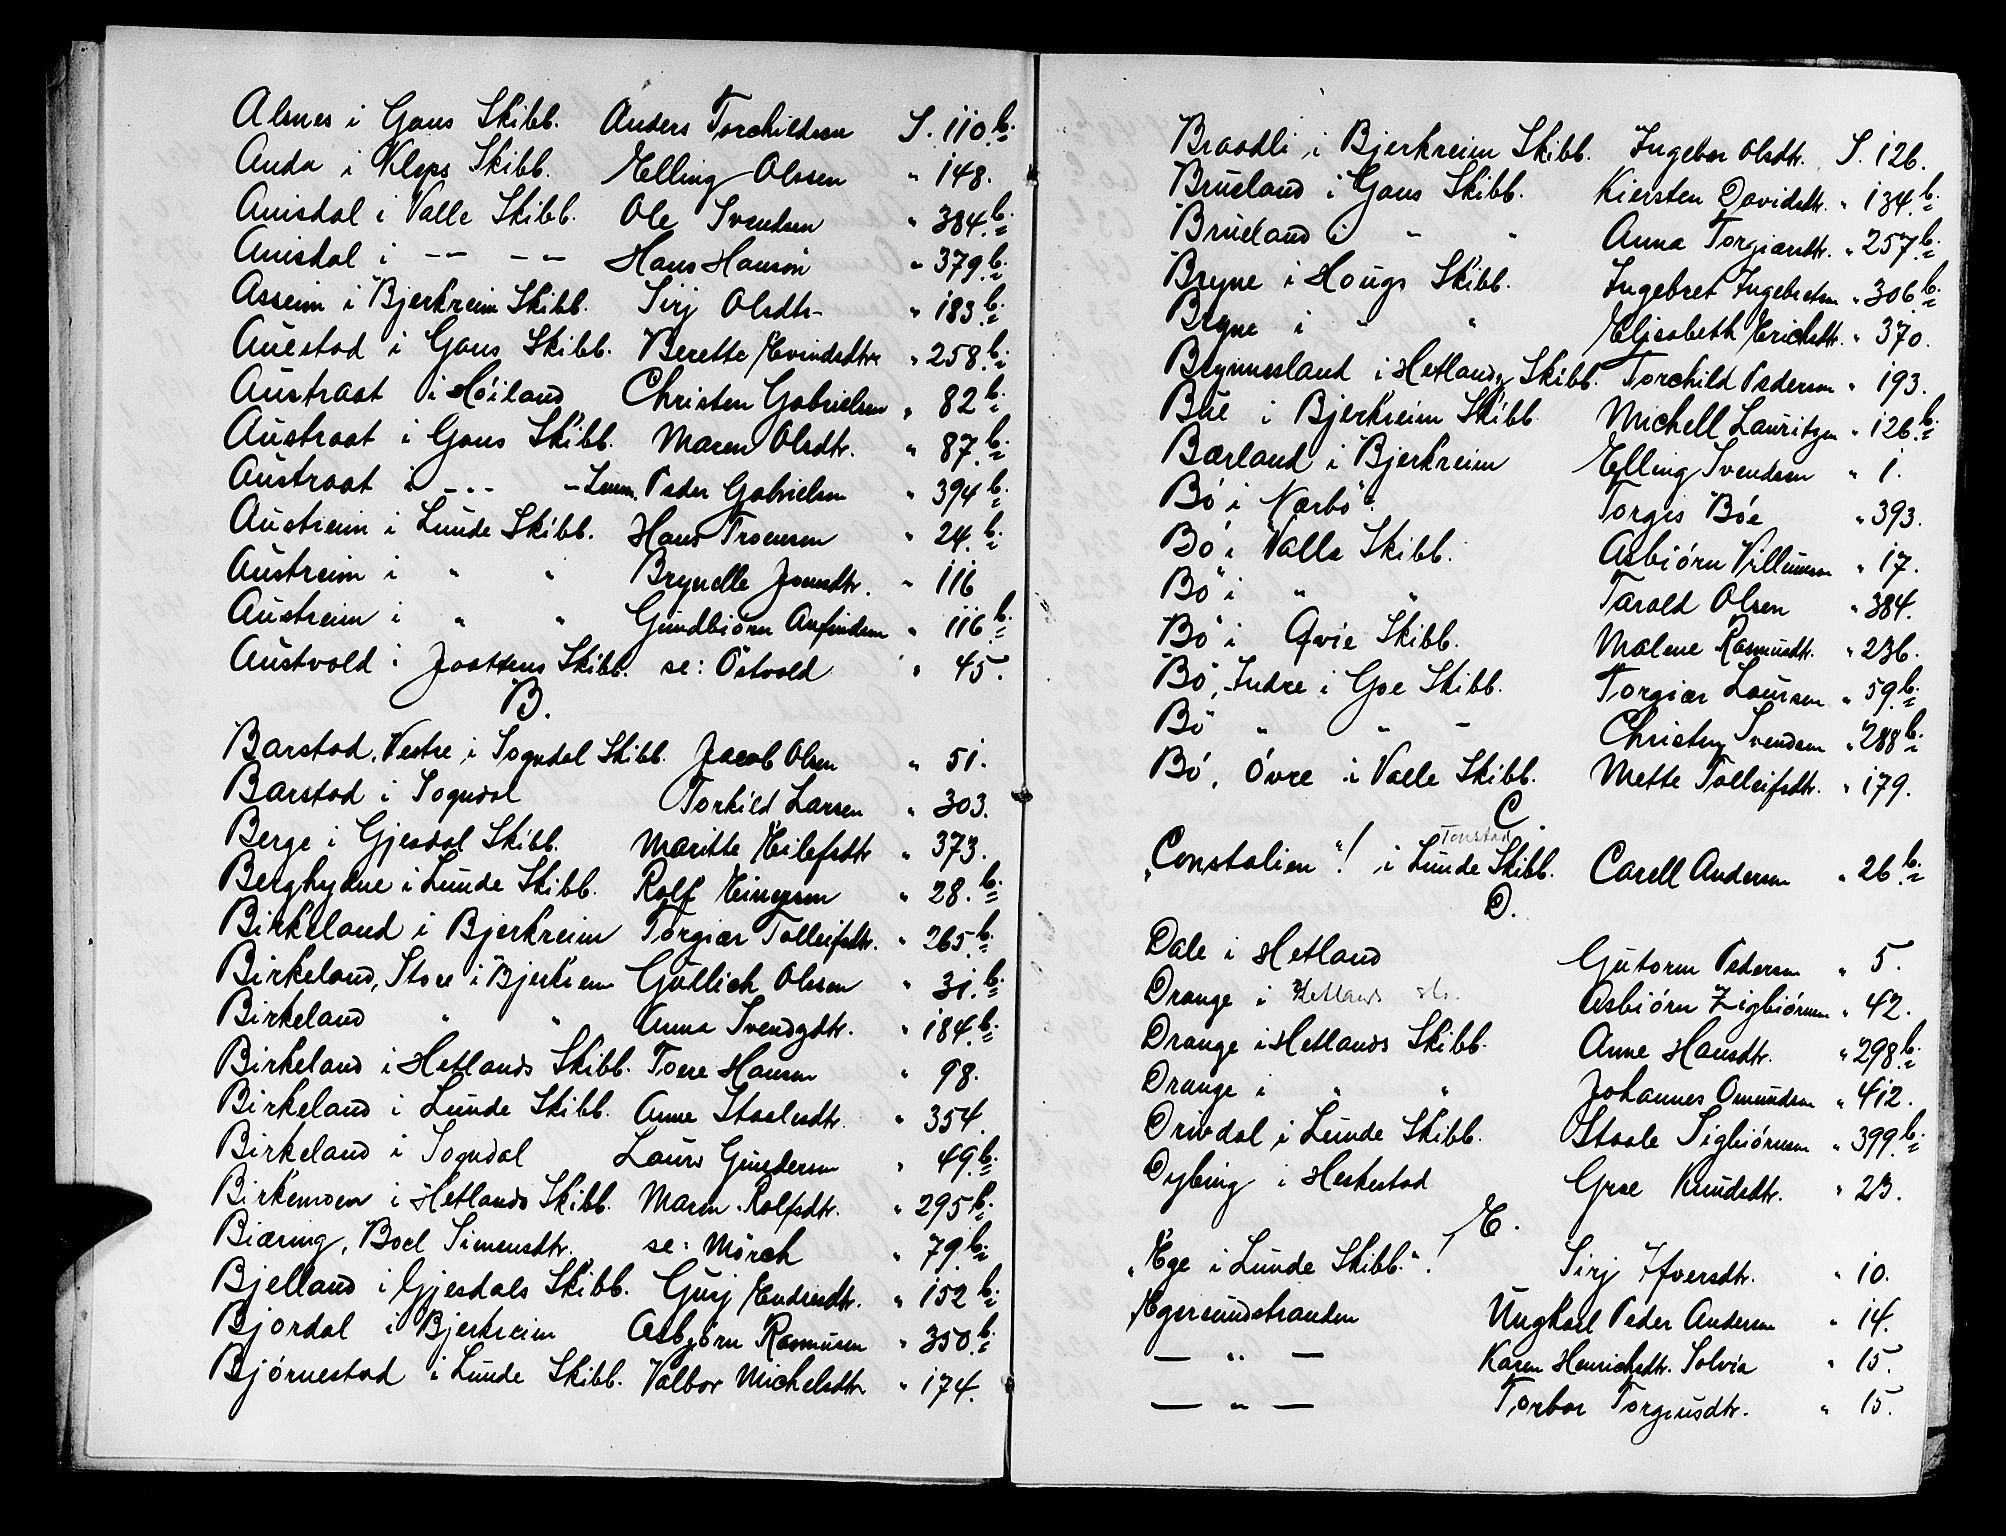 Alsnes i Gans Skibb. Anders Torchildsen S. 110.b.
Anda i Kleps Skibb. Elling Olssen " 148.
Anisdal i Valle Skibb. Ole Svendsen " 384.b.
Anisdal i -- -- Hans Hansøn " 379.b.
Asseim i Bjerkreim Skibb. Sirj Olsdtr " 183.b.
Auestad i Gans Skibb. Berette Evindsdtr " 258.b.
Austraat i Høiland Christen Gabrielsen " 82 b.
Austraat i Gans Skibb. Maren Olsdtr. " 87.b.
Austraat i -- - Lensm. Peder Gabrielsen " 394.b.
Austreim i Lunde Skibb. Hans Troensen " 24.b.
Austreim i " " Brynelle Jonsdtr. " 116
Austreim i " " Gundbiørn Anfindsen " 116.b.
Austvold i Jaattens Skibb. se: Östvold " 45.
B.
Barstad, Vestre i Sogndal Skibb. Jacob Olsen " 51.
Barstad i Sogndal Torkild Larsen " 303.
Berge i Gjesdal Skibb. Maritte Eilefsdtr " 373.
Berghydne i Lunde Skibb. Rolf Einersen " 28.b.
Birkeland i Bjerkreim Torgiær Tolleifsdtr. " 265.b.
Birkeland, Store i Bjerkreim Gullich Olssen " 31.b.
Birkeland " " Anna Svendsdtr. " 184.b.
Birkeland i Hetlands Skibb. Toere Hansen " 98.
Birkeland i Lunde Skibb. Anne Staalesdtr. " 354.
Birkeland i Sogndal Laurs Gundersen " 49.b.
Birkemoen i Hetlands Skibb. Maren Rolfsdtr. " 295 b.
Biæring, Boel Simensdtr. se: Mörch " 79.b.
Bjelland i Gjesdals Skibb. Gurj Endresdtr. " 152 b.
Bjordal i Bjerkreim Asbjørn Rasmusen " 350.b.
Bjørnestad i Lunde Skibb. Valbor Michelsdtr " 174.
Braadli i Bjerkreim Skibb. Ingebor Olsdtr. S. 126.
Brueland i Gans Skibb. Kiersten Davidsdtr. " 134.b.
Brueland i " " Anna Torgiærsdtr. " 257.b.
Bryne i Hougs Skibb. Ingebret Ingebretsen " 306.b.
Bryne i " " Elisabeth Erichsdtr. " 370.
Brynnesland i Hetlands Skibb. Torchild Pedersen " 193.
Bue i Bjerkreim Skibb. Michell Lauritzen " 126.b.
Bærland i Bjerkreim Elling Svendsen " 1.
Bö i Nærbö. Torgis Bóe " 393.
Bö i Valle Skibb. Asbiórn Villumsen " 17.
Bö i " " Tarald Olsen " 384.
Bö i Qvie Skibb. Malene Rasmusdtr. " 236.
Bö, Indre i Goe Skibb. Torgiær Laursen " 59.b.
Bö " " - Christen Svendsen " 288 b.
Bö, Óvre i Valle Skibb. Mette Tolleifsdtr. " 179.
C.
Tonstad
"Constalien"! i Lunde Skibb. Carell Andersen " 26 b.
D.
Dale i Hetland Gutorm Pedersen " 5.
Drange i Hetlands sk. Asbiórn Zigbiórnsen " 42.
Drange i Hetlands Skibb. Anne Hansdtr. " 298 b.
Drange i " " Johannes Omundsen " 412.
Drivdal i Lunde Skibb. Staale Sigbiórnsen " 399.b.
Dybing i Heskestad Groe Knudsdtr. " 23.
E.
"Ege i Lunde Skibb."! Sirj Ifversdtr. " 10.
Egersundstranden Ungkarl Peder Andersen " 14.
— " — Karen Henrichsdtr. Solvia " 15.
— " — Torbor Torgiusdtr. " 15.